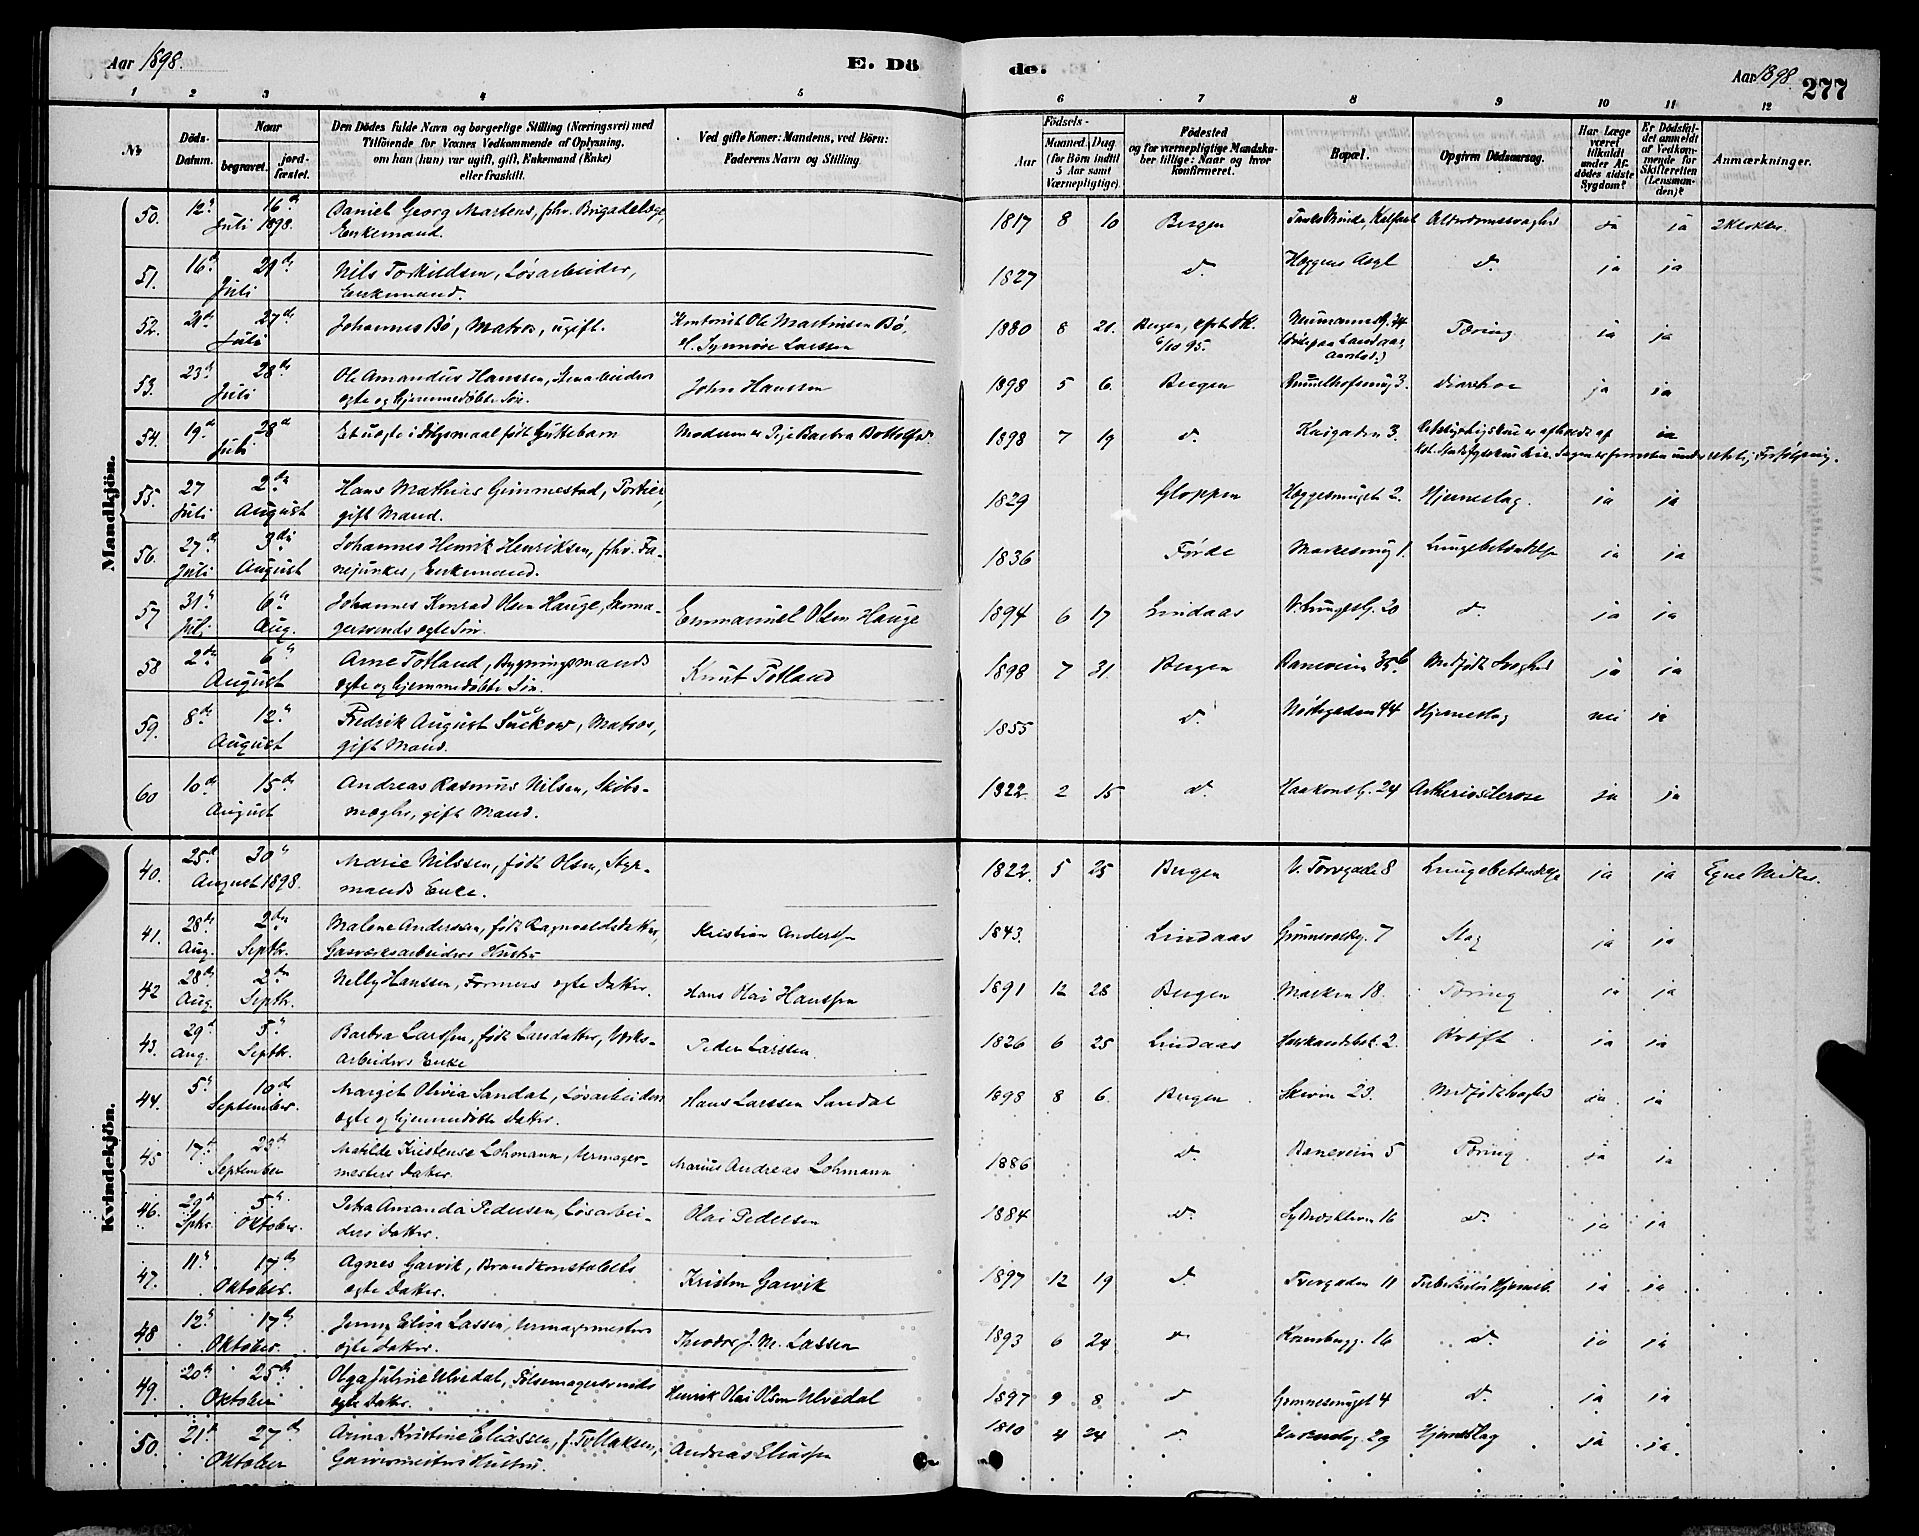 Aar 1898.
E. Dö
de.
Aar 1898.
277
1 2 3 4 5 6 7 8 9 10 11 12
No
Döds-Datum.
Naar
begravet.
jordfæstet.
Den Dödes fulde Navn og borgerlige Stilling (Næringsvei) med
Tilföiende for Voxnes Vedkommende af Oplysning,
om han (hun) var ugift, gift, Enkemand (Enke)
eller fraskilt.
Ved gifte Koner: Mandens, ved Börn:
Faderens Navn og Stilling.
Födsels-
Aar
Maaned. Dag
(for Börn indtil
5 Aar samt
Værnepligtige).
Födested
og for værnepligtige Mandskaber tillige: Naar og hvor
konfirmeret.
Bopæl.
Opgiven Dödsaarsag.
Har Læge
været
tilkaldt
under Afdödes sidste
Sygdom?
Er Dödsfaldet anmeldt
af Vedkommende for
Skifteretten
(Lensmanden)?
Anmærkninger.
Mandkjön.
50. 12te 16de Juli 1898. Daniel Georg Martens, fhv. Brigadelæge, Enkemand. 1817 8 10 Bergen Kalfaret Alderdomssvaghed ja ja 2 Klokker.
51. 16de 21de Juli Nils Torkildsen, Løsarbeider, Enkemand. 1827 do. ja ja
52. 21de 27de Juli Johannes Bø, Matros, ugift. Kontorist Ole Martinsen Bø, H. Synnøve Larssen 1880 8 21. Bergen, 6/10 95. Neumannsg. 34 Tæring ja ja
53. 23de 28de Juli Ole Amandus Hanssen, Stenarbeiders ægte og hjemmedøbte Søn. John Hanssen 1898 5 6. Bergen 3. Diarrhoe ja ja
54. 19de 28de Juli Et uægte i Dølgsmaal født Guttebarn Moderen er Pige Barbra Bottolfsd. 1898 7 19 do. 3. ja
55. 27 Juli 2den August Hans Mathias Gimmestad, Portier, gift Mand. 1829 Gloppen 2. Hjerneslag. ja ja
56. 27de Juli 3die August Johannes Henrik Henriksen, fhv. Fanejunker, Enkemand. 1836 Førde Markesmug 1. Lungebetændelse ja ja
57 31te Juli 6te Aug. Johannes Konrad Olsen Hauge, Skomagersvends ægte Søn. Emmanuel Olsen Hauge 1894 6 17 Lindaas 20 do. ja ja
58 2den 6te August Arne Totland, Bygningsmands ægte og hjemmedøbte Søn. Knut Totland 1898 7 31. Bergen Baneveien 35b Medfødt Svaghed ja ja
59. 8de 12te August Fredrik August Suckow, Matros, gift Mand. 1855 do. Nøstegaden 44 Hjerneslag nei ja
60 10de 15de August Andreas Rasmus Nilsen, Skibsmægler, gift Mand. 1822. 2 15 do. Haakonsg. 24 Artheriosclerose ja ja
Kvindekjön.
40. 25de 30te August 1898. Marie Nilssen, født Olsen, Styrmands Enke. 1822. 5 25 Bergen V. Torvgade 8 Lungebetændelse ja ja Egne Midler.
41. 28de Aug. 2den Septbr. Malene Anderssen, født Ragnvaldsdatter, Gasværksarbeiders Hustru Kristian Andersen 1843. Lindaas Grønnevoldsg. 7 Slag ja ja
42 28de Aug. 2den Septbr. Nelly Hanssen, Formers ægte Datter. Hans Olai Hanssen 1891 12 28 Bergen Marken 18. Tæring ja ja
43. 29de Aug. 5te Septbr. Barbra Larssen, født Larsdatter, Verksarbeiders Enke Peder Larssen. 1826 6 25 Lindaas 2. Kræft ja ja
44. 5te 10de September. Margit Olivia Sandal, Løsarbeiders ægte og hjemmedøbte Datter. Hans Larssen Sandal 1898 8 6. Bergen Skivien 23. Medfødt Svaghed ja ja
45 17de 23de September Matilde Kristense Lohmann, Urmagermesters Datter. Marius Andreas Lohmann 1886 do. Baneveien 5 Tæring. ja ja
46. 29de Septbr. 5te Oktober. Petra Amanda Pedersen, Løsarbeiders Datter. Olai Pedersen 1884 do. 16 do. ja ja
47. 11te 17de Oktober. Agnes Garvik, Brandkonstabels ægte Datter. Kristen Garvik 1897 12 19 do. Tvergaden 11 Tuberkuløs Hjerneb. ja ja
48 12te 17de Oktober. Jenny Elisa Lassen, Urmagermesters ægte Datter. Theodor J. M. Lassen 1893 6 24 do. 16 do. ja ja
49. 20de 25de Oktober Olga Juline Ulvedal, Pølsemagersvends ægte Datter. Henrik Olai Olsen Ulvedal 1897 9 8 do 4 do. ja ja
50. 21de 27de Oktober Anna Kristine Eliassen, f. Tollaksen, Garvermesters Hustru. Andreas Eliassen 1810 4 24 do 29 Hjerneslag ja ja.